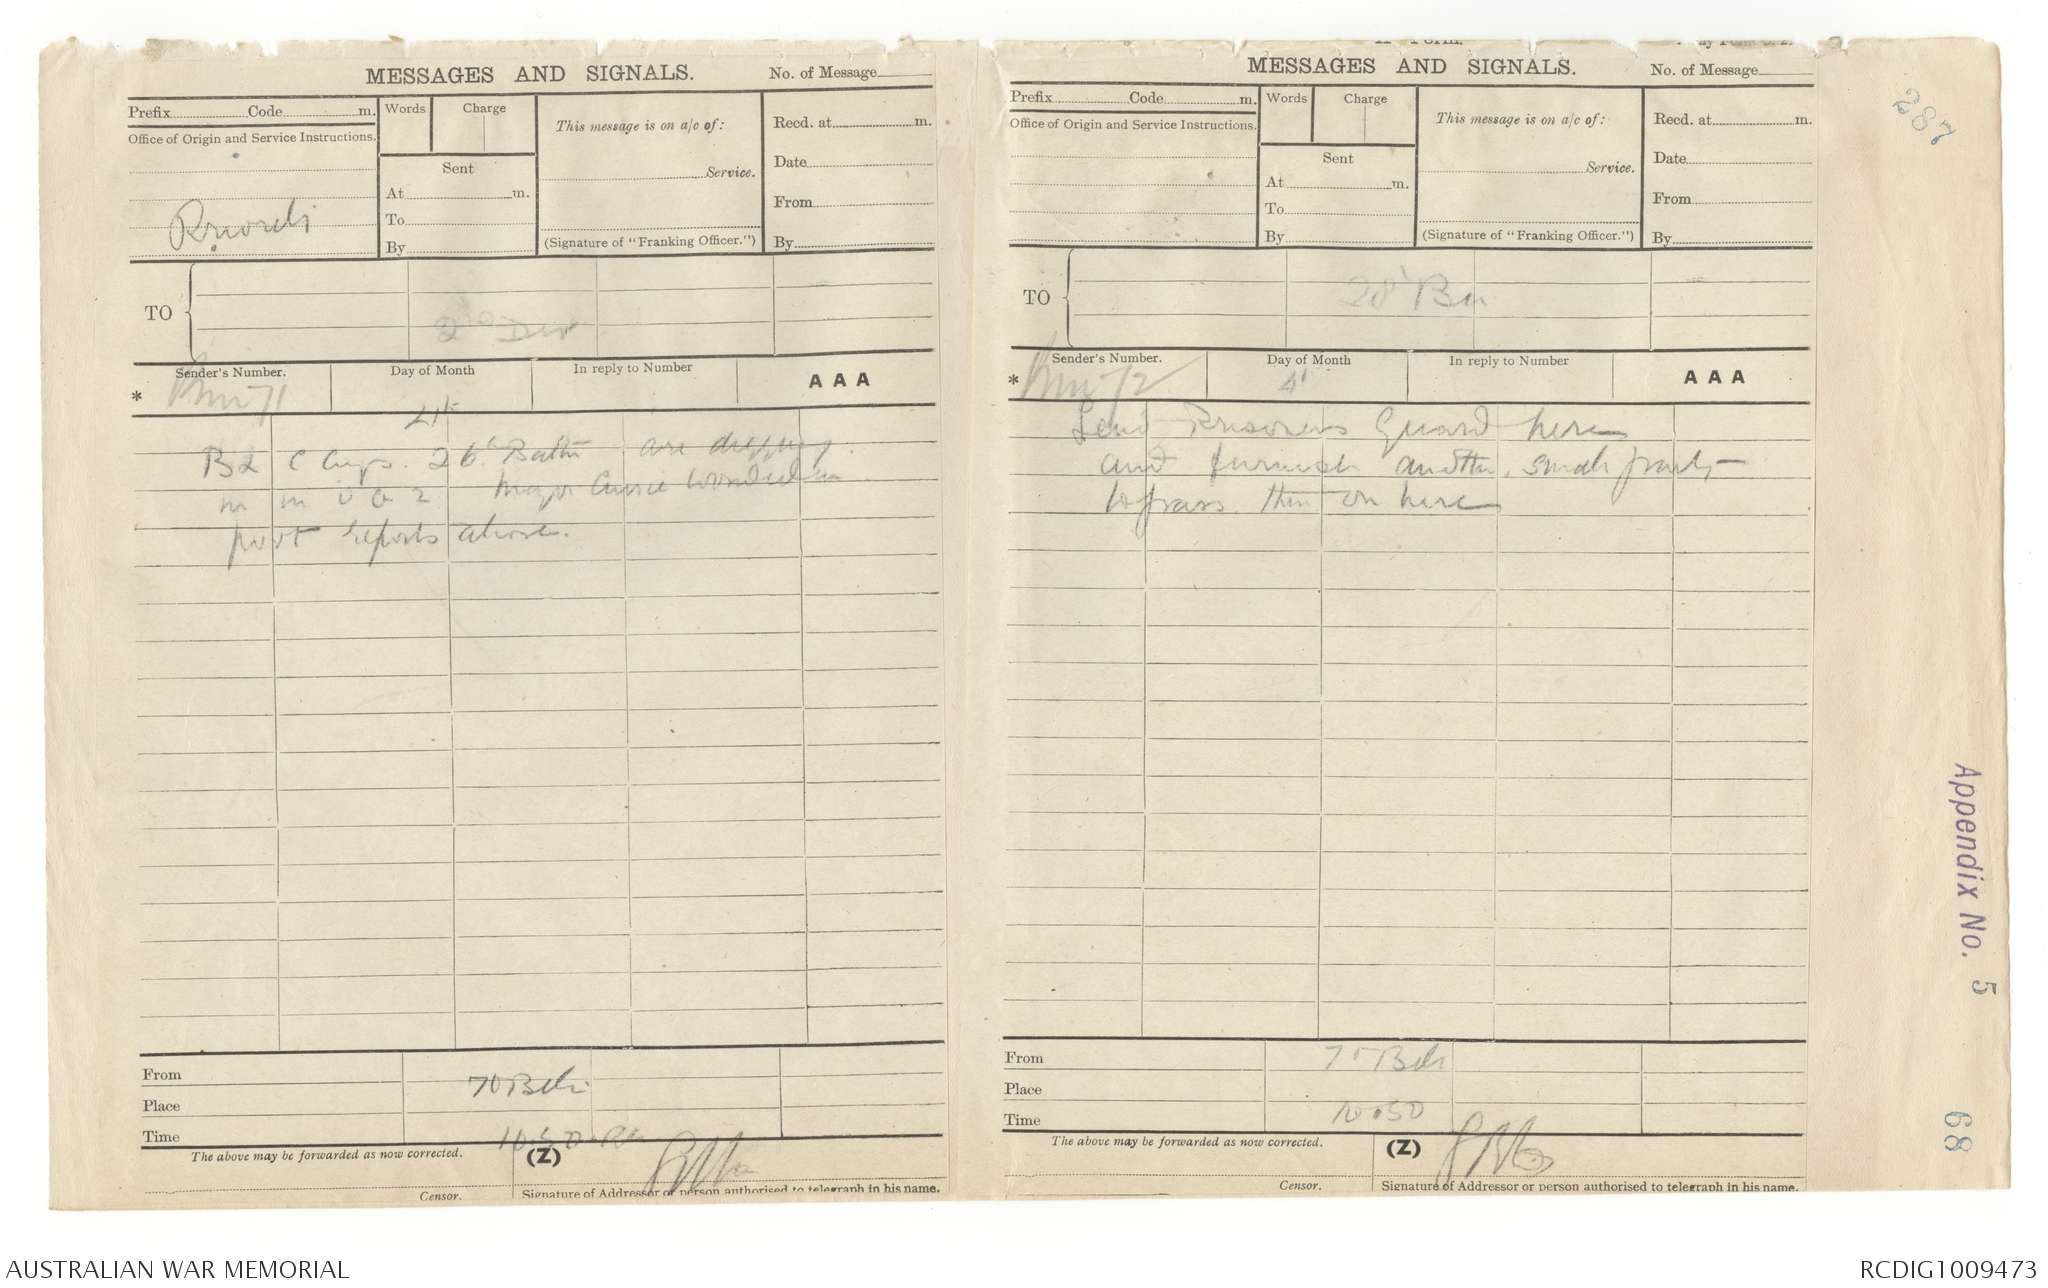 MESSAGES AND SIGNALS.
No. of Message
Prefix Code m.
Words
Charge
This message is on a/c of:
Recd. at m.
Office of Origin and Service Instructions.
Sent
Service.
Date
At m.
From
To
By
(Signature of "Franking Officer.")
By
TO
2nd Div
Sender's Number.
Day of Month
In reply to Number
AAA
71
4th
B & C Coys. 26th Battn are digging
Major wounded
post reports above.
From
7th Bde
Place
Time
The above may be forwarded as now corrected.
(Z)
Censor.
Signature of Addressor or person authorised to telegraph in his name.
MESSAGES AND SIGNALS.
No. of Message
Prefix Code m.
Words
Charge
This message is on a/c of:
Recd. at m.
Office of Origin and Service Instructions.
Sent
Service.
Date
At m.
From
To
By
(Signature of "Franking Officer.")
By
TO
28th Bn
Sender's Number.
Day of Month
In reply to Number
AAA
72
4th
Send Prisoners Guard here
and furnish another small party
to pass them on here
From
7th Bde
Place
Time
10.50
The above may be forwarded as now corrected.
(Z)
Censor.
Signature of Addressor or person authorised to telegraph in his name.
287
Appendix No. 5
68
AUSTRALIAN WAR MEMORIAL
RCDIG1009473